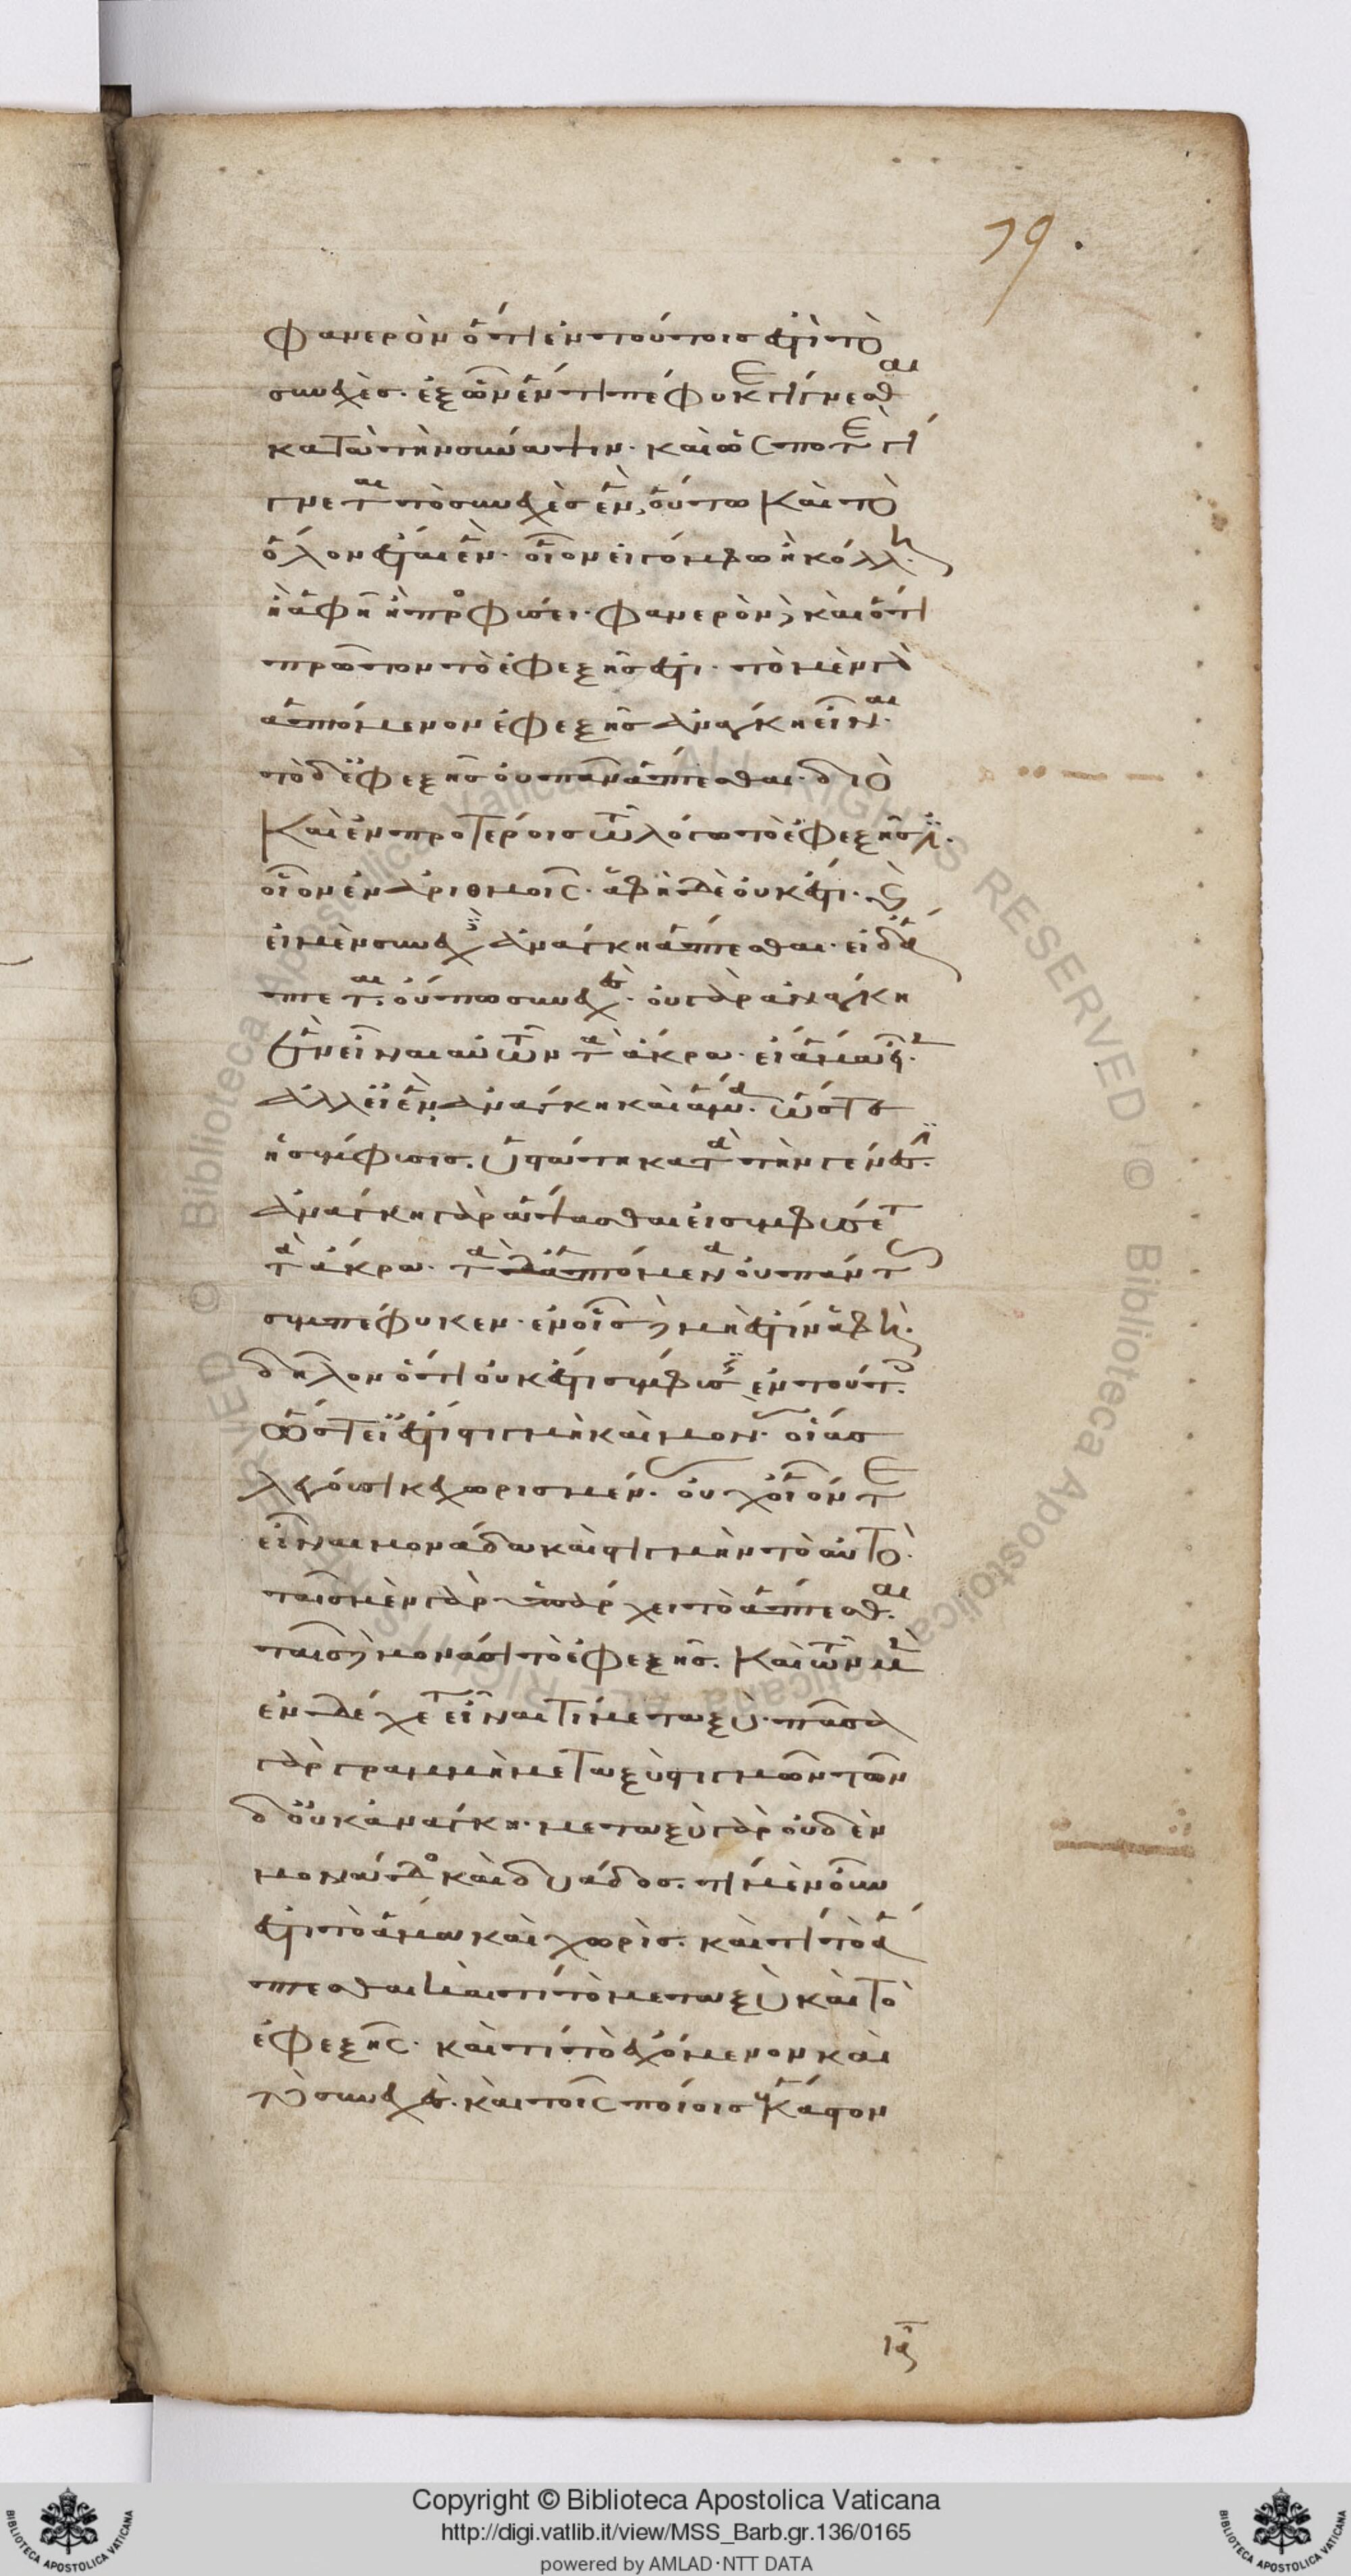 79.
φανερὸν ὅτι ἐν τούτοις ἐστὶ τὸ
συνεχὲς. ἐξ ὧν ἕν τι πέφυκε γίνεσθαι
κατὰ τὴν σύναψιν. καὶ ὥς ποτε γί
γνεται τὸ συνεχὲς ἓν, οὕτω καὶ τὸ
ὅλον ἔσται ἕν. οἷον εἰ γόμφω ἢ κόλλη.
ἢ ἁφῆ ἢ προσφύσει. φανερὸν δὲ καὶ ὅτι
πρῶτον τὸ ἐφεξῆς ἐστι. τὸ μὲν γὰρ
ἁπτόμενον ἐφεξῆς ἀνάγκη εἶναι.
τὸ δ' ἐφεξῆς οὐ πᾶν ἅπτεσθαι. διὸ
καὶ ἐν προτέροις τῶ λόγω τὸ ἐφεξῆς
οἷον ἐν ἀριθμοῖς. ἁφὴ δὲ οὐκ ἔστι. καὶ
εἰ μὲν συνεχὲς ἀνάγκη ἅπτεσθαι. εἰ δ' ἅ
πτεται. οὔπω συνεχές. οὐ γὰρ ἀνάγκη
ἓν εἶναι αὐτῶν τὰ ἄκρα. εἰ ἅμα εἶεν.
ἀλλ' εἰ ἓν ἀνάγκη καὶ ἅμα. ὥστε
ἡ σύμφυσις. ὑστάτη κατὰ τὴν γένεσιν.
ἀνάγκη γὰρ ἅψασθαι εἰ συμφύσεται
τὰ ἄκρα. τὰ δὲ ἁπτόμενα οὐ πάντα
συμπέφυκεν. ἐν οἷς δὲ μὴ ἔστιν ἁφὴ.
δῆλον ὅτι οὐκ ἔστι σύμφυσις ἐν τούτοις.
ὥστ' εἰ ἔστι στιγμὴ καὶ μονὰς. οἵας
λέγουσι κεχωρισμένας. οὐχ οἷόν τε
εἶναι μονάδα καὶ στιγμὴν τὸ αὐτὸ.
ταῖς μὲν γὰρ ὑπάρχει τὸ ἅπτεσθαι.
ταῖς δὲ μονάσι τὸ ἐφεξῆς. καὶ τῶν μὲν
ἐνδέχεται εἶναί τι μεταξὺ. πᾶσα
γὰρ γραμμὴ μεταξὺ στιγμῶν τῶν
δ' οὐκ ἀνάγκη. μεταξὺ γὰρ οὐδὲν
μονάδος καὶ δυάδος. τί μὲν οὖν
ἐστι τὸ ἅμα καὶ χωρὶς. καὶ τί τὸ ἅ
πτεσθαι καὶ τί τὸ μεταξὺ καὶ τὸ
ἐφεξῆς. καὶ τί τὸ ἐχόμενον καὶ
τὸ συνεχές. καὶ τοῖς ποίοις ἕκαστον
Copyright © Biblioteca Apostolica Vaticana
http://digi.vatlib.it/view/MSS_Barb.gr.136/0165
powered by AMLAD·NTT DATA